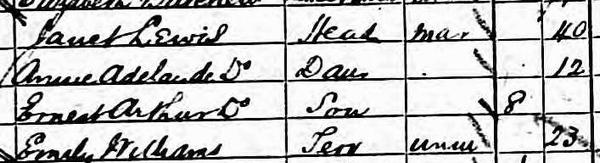 Janet Lewis Head mar 40
Annie Adelaide Do Dau 12
Ernest Arthur Do Son 8
Emily Williams Serv unm 23